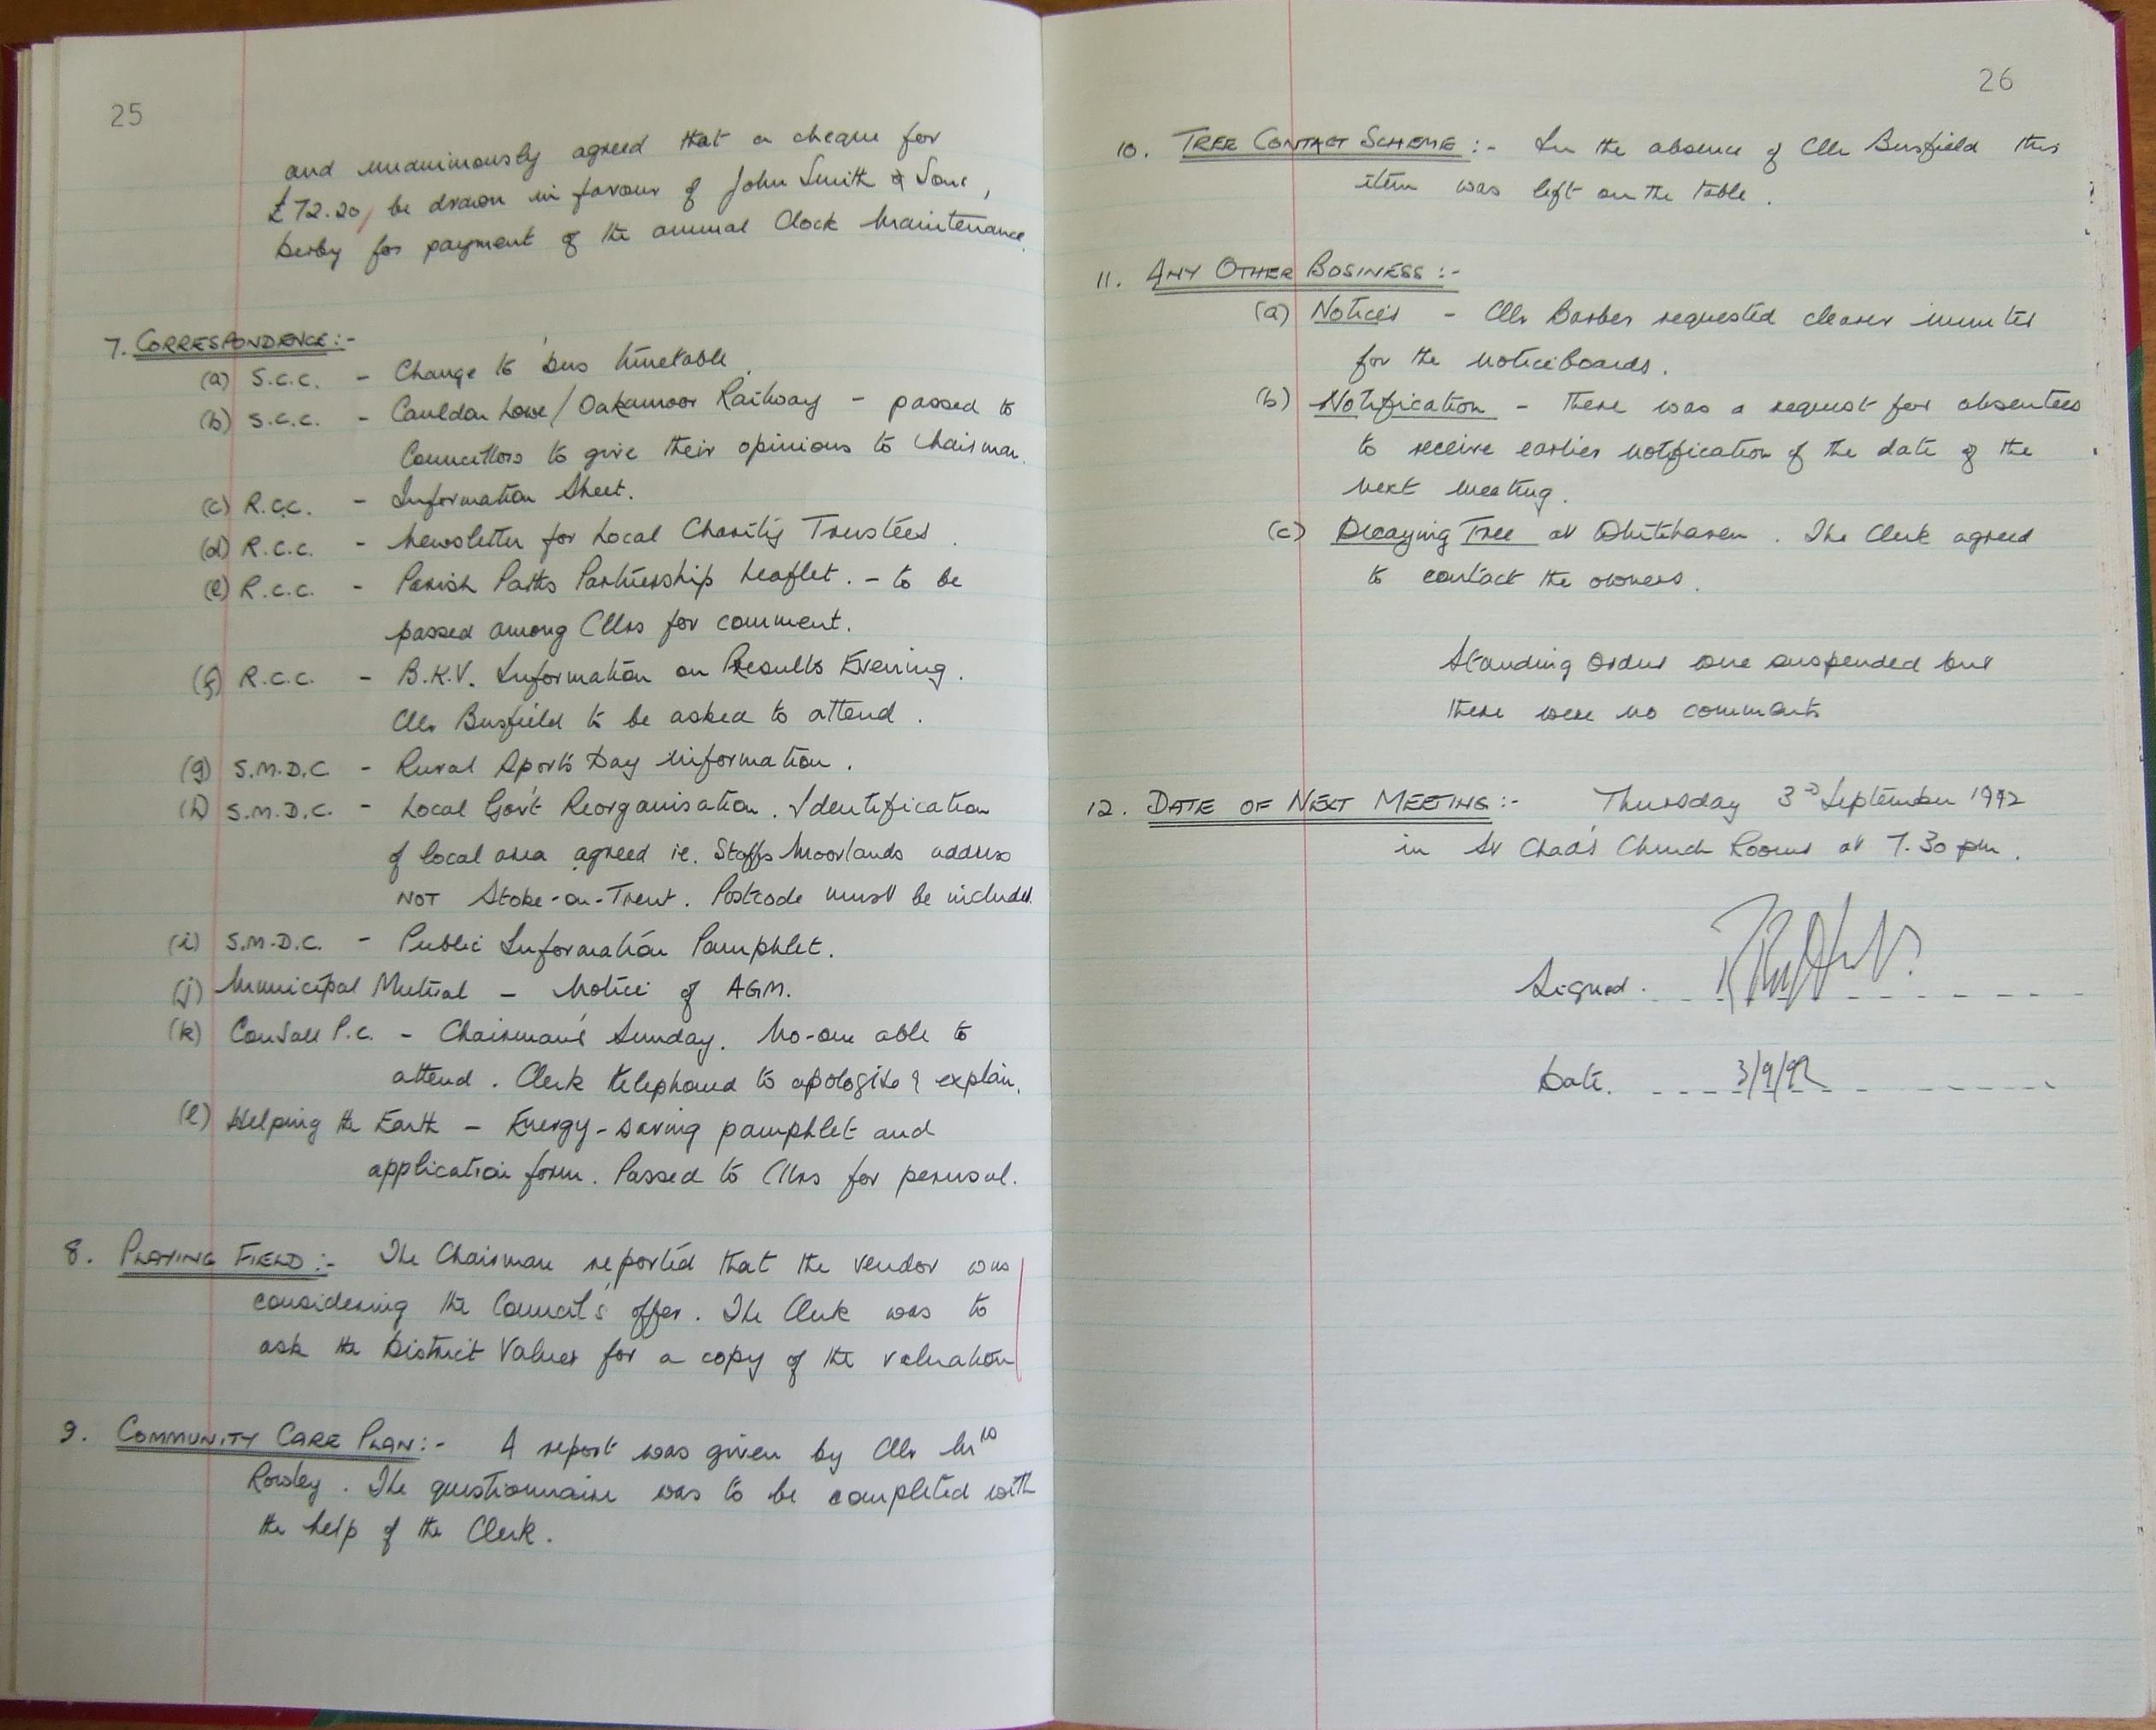 25
and unanimously agreed that a cheque for
£72.20 be drawn in favour of John Smith & Sons,
Derby for payment of the annual Clock Maintenance.
7. CORRESPONDENCE:-
(a) S.C.C. - Change to 'bus timetable.
(b) S.C.C. - Cauldon Lowe/Oakamoor Railway - passed to
Councillors to give their opinions to Chairman.
(c) R.C.C. - Information Sheet.
(d) R.C.C. - Newsletter for Local Charity Trustees.
(e) R.C.C. - Parish Paths Partnership Leaflet. - to be
passed among Cllrs for comment.
(f) R.C.C. - B.K.V. Information on Results Evening.
Cllr Busfield to be asked to attend.
(g) S.M.D.C. - Rural Sports Day information.
(h) S.M.D.C. - Local Gov't Reorganisation. Identification
of local area agreed ie. Staffs Moorlands address
NOT Stoke-on-Trent. Postcode must be included.
(i) S.M.D.C. - Public Information Pamphlet.
(j) Municipal Mutual - Notice of AGM.
(k) Consall P.C. - Chairman's Sunday. No-one able to
attend. Clerk telephoned to apologise & explain.
(l) Helping the Earth - Energy-saving pamphlet and
application form. Passed to Cllrs for perusal.
8. PLAYING FIELD:- The Chairman reported that the vendor was
considering the Council's offer. The Clerk was to
ask the District Valuer for a copy of the valuation
9. COMMUNITY CARE PLAN:- A report was given by Cllr Mrs
Rowley. The questionnaire was to be completed with
the help of the Clerk.
26
10. TREE CONTACT SCHEME:- In the absence of Cllr Busfield this
item was left on the table.
11. ANY OTHER BUSINESS:-
(a) Notices - Cllr Barber requested clearer minutes
for the noticeboards.
(b) Notification - There was a request for absentees
to receive earlier notification of the date of the
next meeting.
(c) Decaying Tree at Whitehaven. The Clerk agreed
to contact the owners.
Standing Orders were suspended but
there were no comments
12. DATE OF NEXT MEETING:- Thursday 3rd September 1992
in St Chad's Church Rooms at 7.30pm.
Signed.
Date. 3/9/92